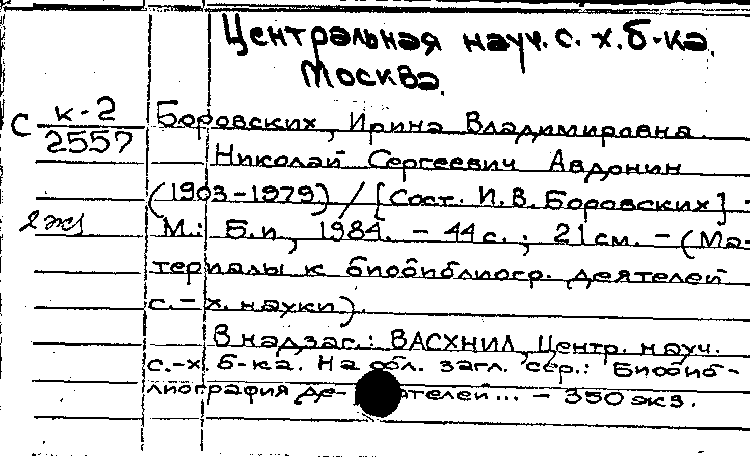 Центральная науч. с. х. б-ка.
Москва.
С к-2
2557
Боровских, Ирина Владимировна.
Николай Сергеевич Авдонин
(1903-1979) / [Сост. И. В. Боровских] -
2 экз
М.: Б.и, 1984. - 44 с.; 21 см. - (Ма-
териалы к биобиблиогр. деятелей
с.-х. науки).
В надзаг.: ВАСХНИЛ, Центр. науч.
с.-х. б-ка. На обл. загл. сер.: Биобиб-
лиография де- ятелей... - 350 экз.